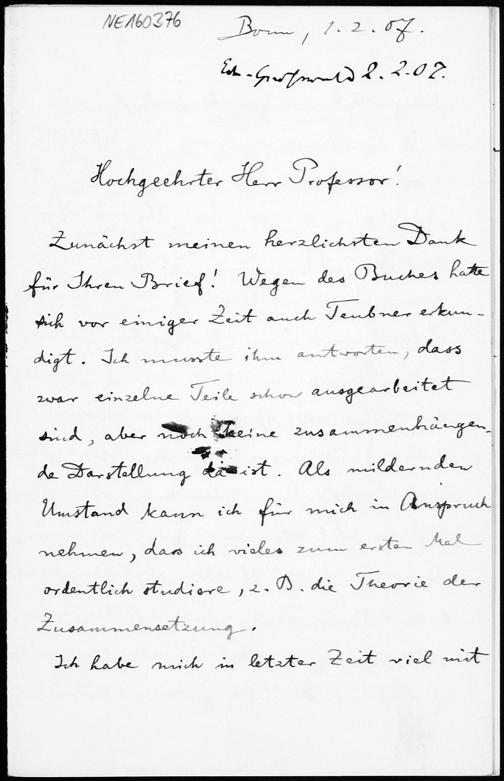 NE160376
Bonn, 1.2.07.
2.2.07.
Hochgeehrter Herr Professor!
Zunächst meinen herzlichsten Dank
für Ihren Brief! Wegen des Buches hatte
sich vor einiger Zeit auch Teubner erkun-
digt. Ich musste ihm antworten, dass
zwar einzelne Teile schon ausgearbeitet
sind, aber noch keine zusammenhängen-
de Darstellung da ist. Als mildernden
Umstand kann ich für mich in Anspruch
nehmen, dass ich vieles zum ersten Mal
ordentlich studiere, z. B. die Theorie der
Zusammensetzung.
Ich habe mich in letzter Zeit viel mit